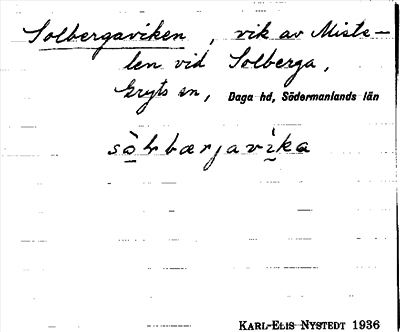 Solbergaviken, vik av Miste-
len vid Solberga,
Gryts sn, Daga hd, Södermanlands län
sòlbærjavìka
KARL-ELIS NYSTEDT 1936